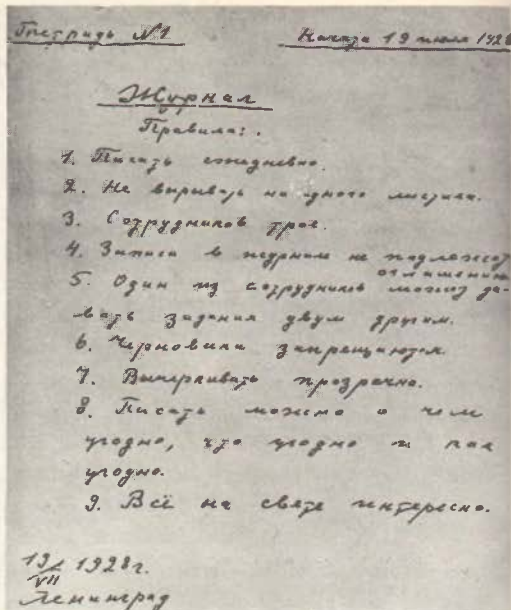 Тетрадь №1
Начата 19 июля 1928
Журнал
Правила:.
1. Писать ежедневно.
2. Не вырывать ни одного листика.
3. Сотрудников трое.
4. Записи в журнале не подлежат
оглашению
5. Один из сотрудников может да-
вать задания двум другим.
6. Черновики запрещаются.
7. Вычеркивать прозрачно.
8. Писать можно о чем
угодно, что угодно и как
угодно.
9. Всё на свете интересно.
19/VII 1928 г.
Ленинград